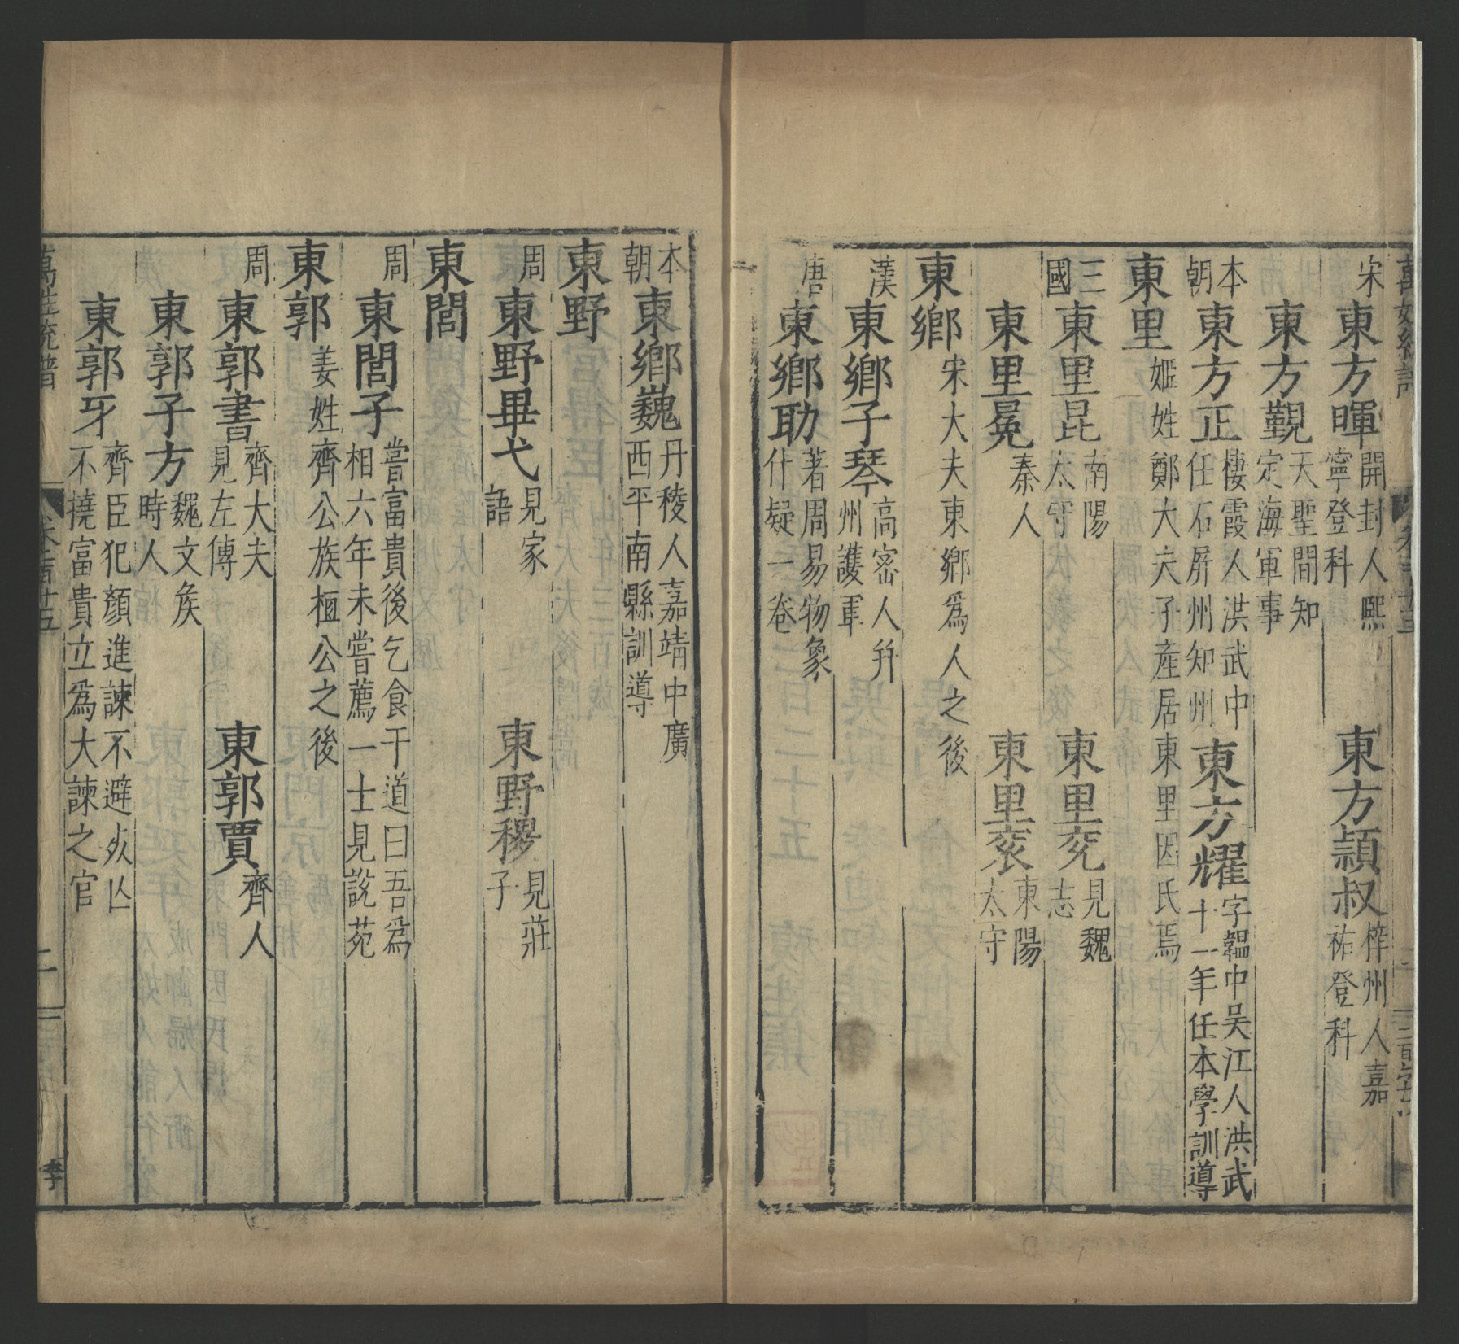 宋 東方暉 開封人熙寧登科 東方顥叔 梓州人嘉祐登科
東方覲 天聖間知定海軍事
本朝 東方正 棲霞人洪武中任石屏州知州 東方耀 字韞中吴江人洪武十一年任本學訓導
東里 姬姓鄭大夫子產居東里因氏焉
三國 東里昆 南陽太守 東里兖 見魏志
東里冕 秦人 東里袞 東陽太守
東鄉 宋大夫東鄉為人之後
漢 東鄉子琴 高密人并州護軍
唐 東鄉助 著周易物象什疑一卷
本朝 東鄉巍 丹稜人嘉靖中廣西平南縣訓導
東野
周 東野畢弋 見家語 東野稷 見莊子
東閭
周 東閭子 嘗富貴後乞食于道曰吾為相六年未嘗薦一士見說苑
東郭 姜姓齊公族桓公之後
周 東郭書 齊大夫見左傳 東郭賈 齊人
東郭子方 魏文矦時人
東郭牙 齊臣犯顏進諫不避死亾不撓富貴立為大諫之官
萬姓統譜
二
李